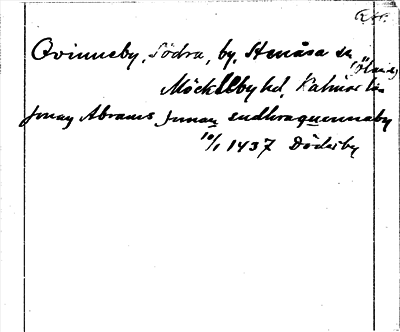 Qvinneby, Södra, by, Stenåsa sn
(Öland)
Möckleby hd, Kalmar län
jonas Abrams sunar sudhraquennaby
10/1 1437 Döderby